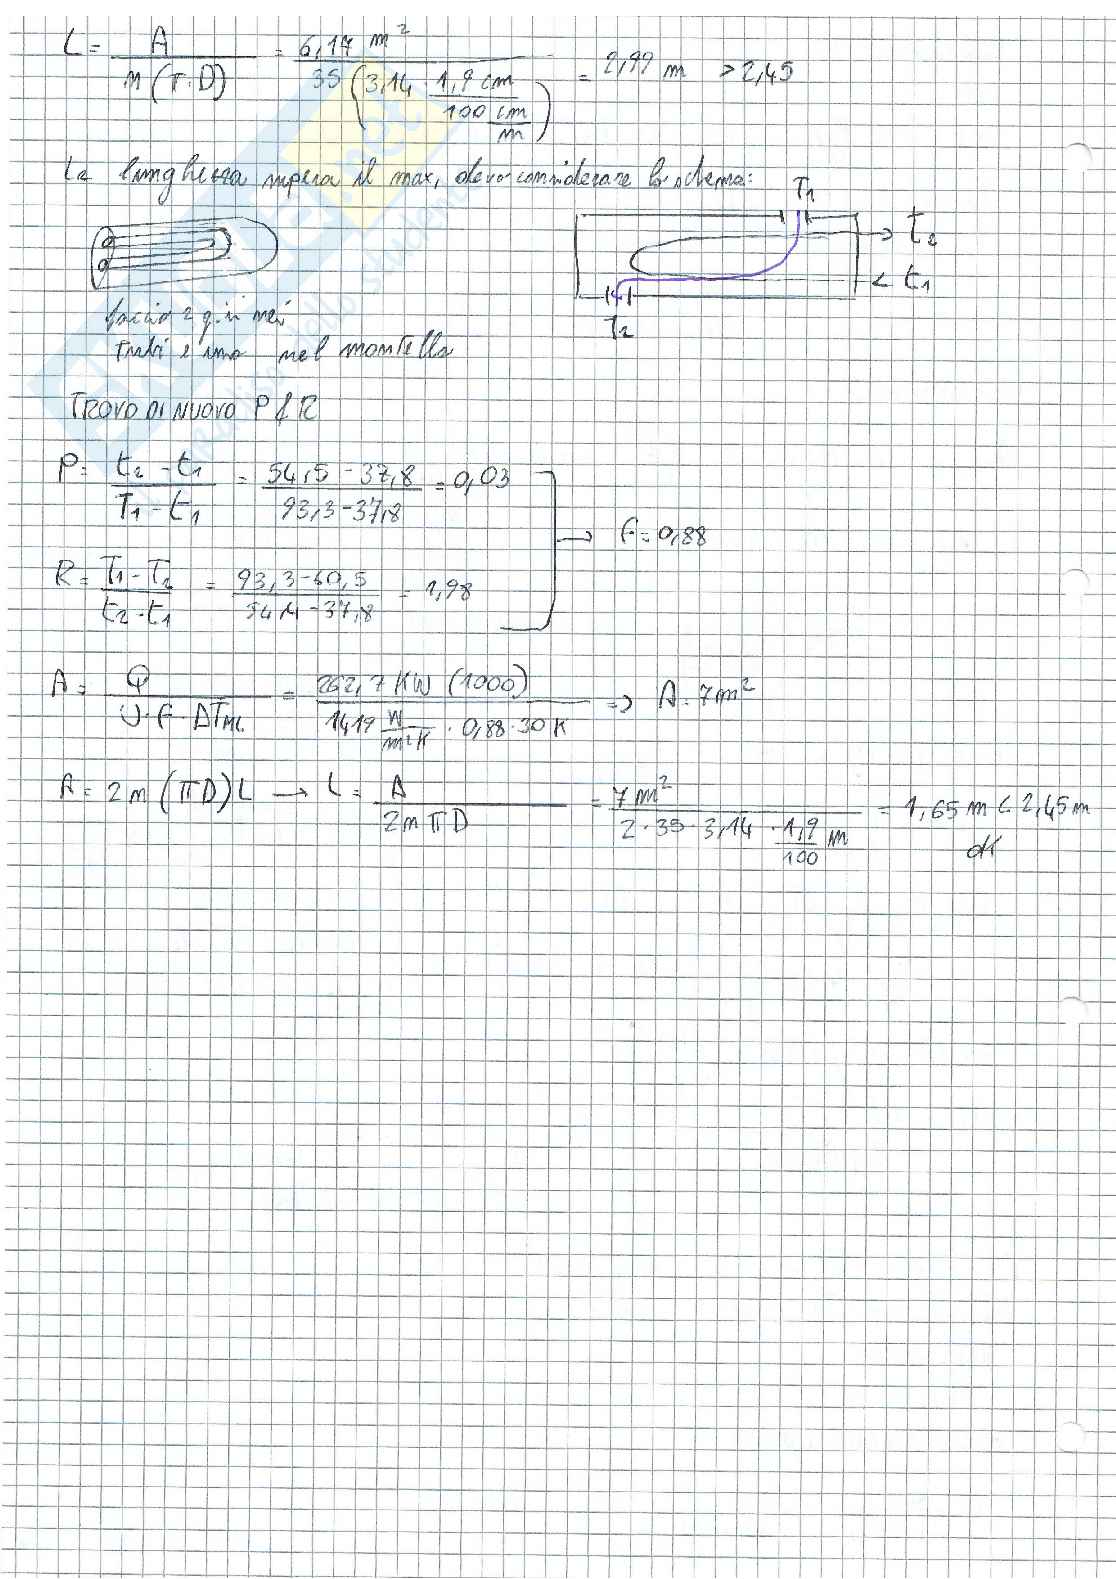 L = A / n(π·D) = 6,17 m² / 35 (3,14 · 1,9 cm / 100 cm/m) = 2,99 m > 2,45
La lunghezza supera il max, devo considerare lo schema:
T1
t2
t1
T2
faccio 2 q.ii nei
tubi e uno nel mantello
TROVO DI NUOVO P & R
P = t2 - t1 / T1 - t1 = 54,5 - 37,8 / 93,3 - 37,8 = 0,03
→ F = 0,88
R = T1 - T2 / t2 - t1 = 93,3 - 60,5 / 54,4 - 37,8 = 1,98
A = Q / U·F·ΔTML = 262,7 KW (1000) / 1419 W/m²K · 0,88 · 30 K => A = 7 m²
A = 2n (πD) L → L = A / 2nπD = 7 m² / 2 · 35 · 3,14 · 1,9/100 m = 1,65 m < 2,45 m
OK